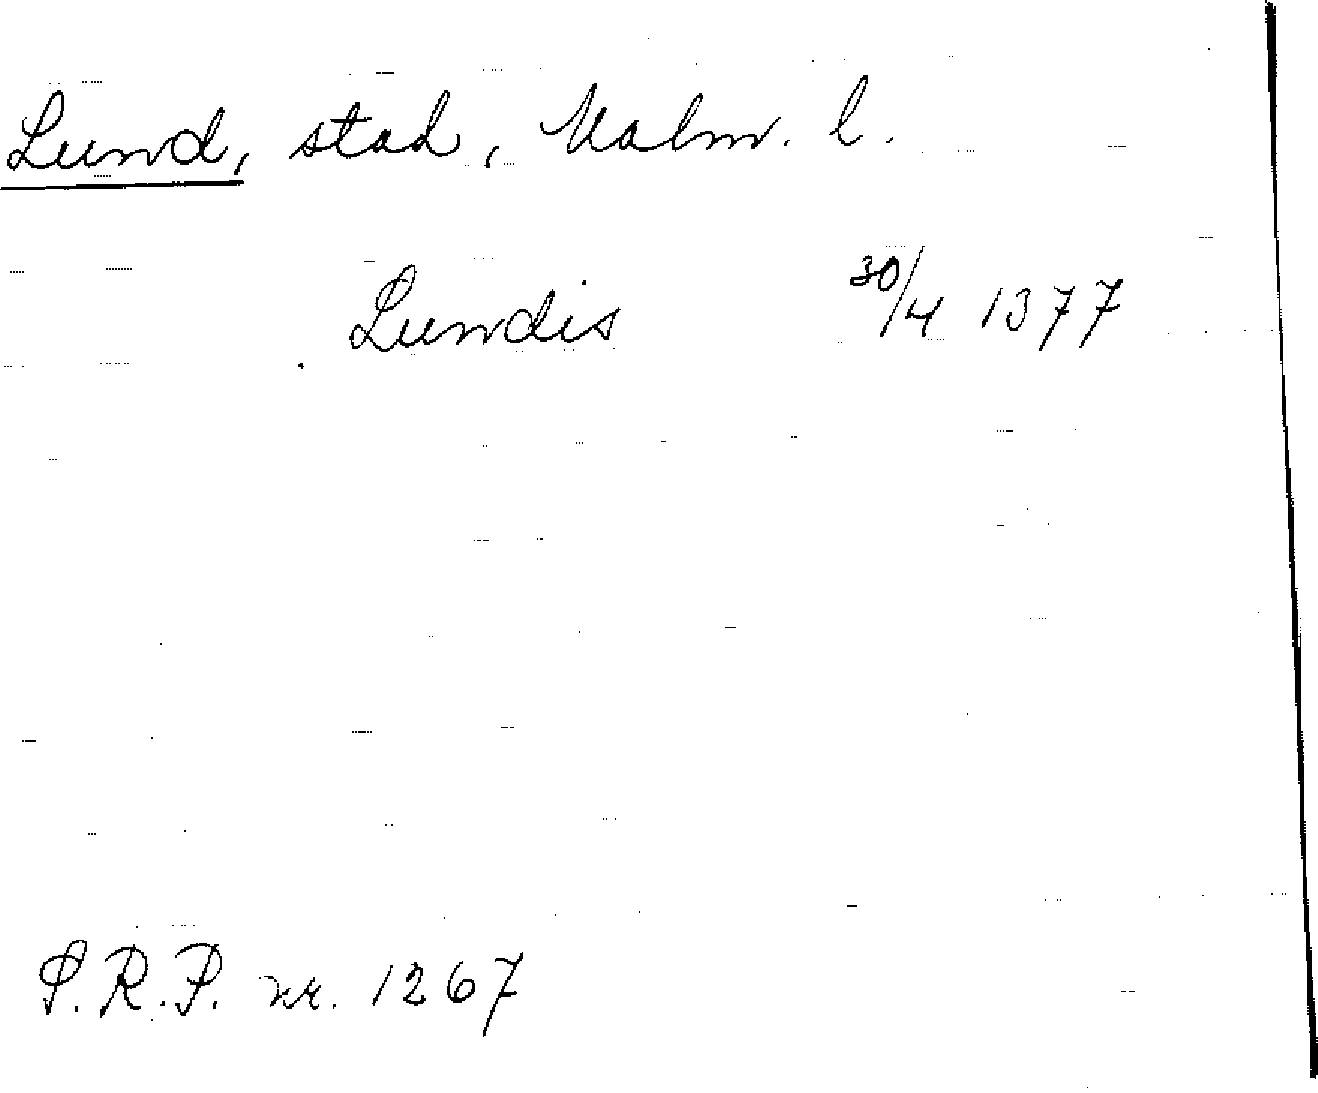 Lund, stad, Malm. l.
Lundis 30/4 1377
P.R.P. nr. 1267